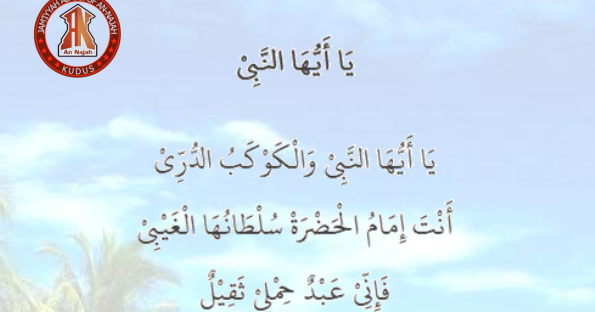 JAM'IYYAH ALBUM OF AN-NAJAH
An Najah
KUDUS
يَا أَيُّهَا النَّبِيْ
يَا أَيُّهَا النَّبِيْ وَالْكَوْكَبُ الدُّرِّيْ
أَنْتَ إِمَامُ الْحَضْرَةْ سُلْطَانُهَا الْغَيْبِيْ
فَإِنِّيْ عَبْدٌ حِمْلِيْ ثَقِيْلٌ